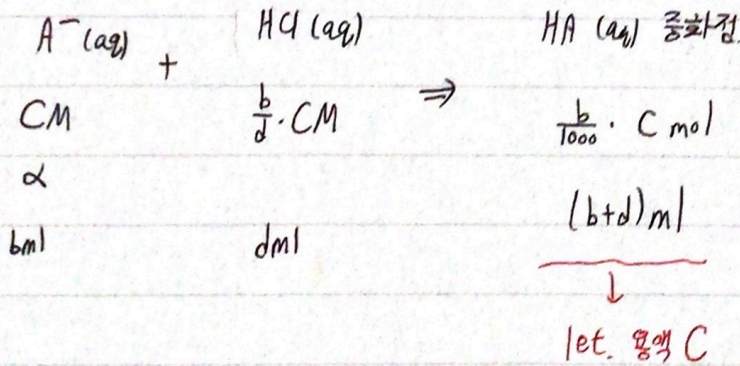 A⁻ (aq) + HCl (aq) ⇒ HA (aq) 중화점.
CM b/d · CM b/1000 · C mol
α
bml dml (b+d)ml
↓
let. 용액 C